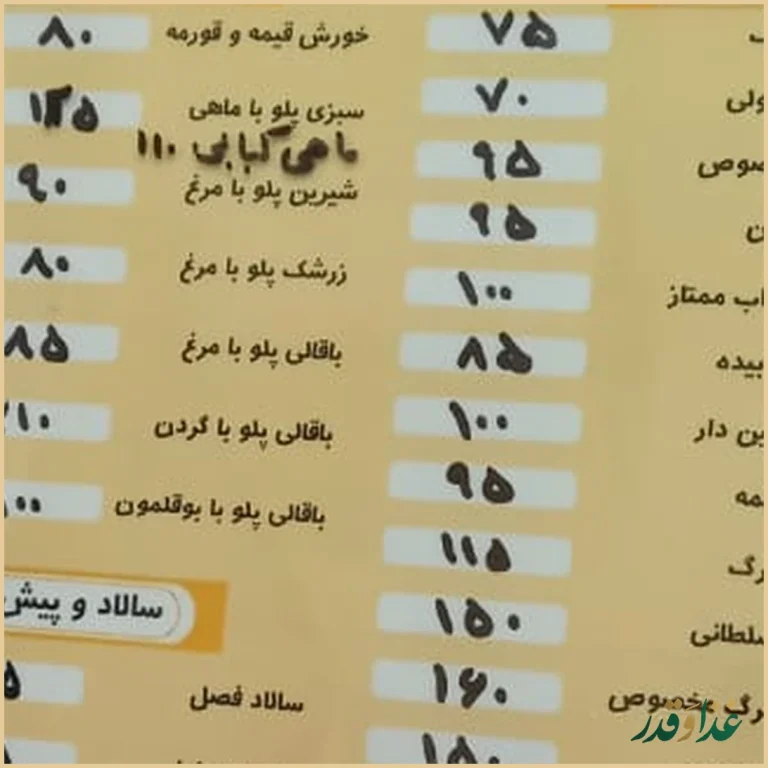 ۷۵
ولی ۷۰
صوص ۹۵
ن ۹۵
اب ممتاز ۱۰۰
بیده ۸۵
ین دار ۱۰۰
مه ۹۵
رگ ۱۱۵
سلطانی ۱۵۰
رگ مخصوص ۱۶۰
۱۵۰
خورش قیمه و قورمه ۸۰
سبزی پلو با ماهی ۱۲۵
ماهی کبابی ۱۱۰
شیرین پلو با مرغ ۹۰
زرشک پلو با مرغ ۸۰
باقالی پلو با مرغ ۸۵
باقالی پلو با گردن ۲۱۰
باقالی پلو با بوقلمون ۱۰۰
سالاد و پیش
سالاد فصل ۵
غذا و قدر